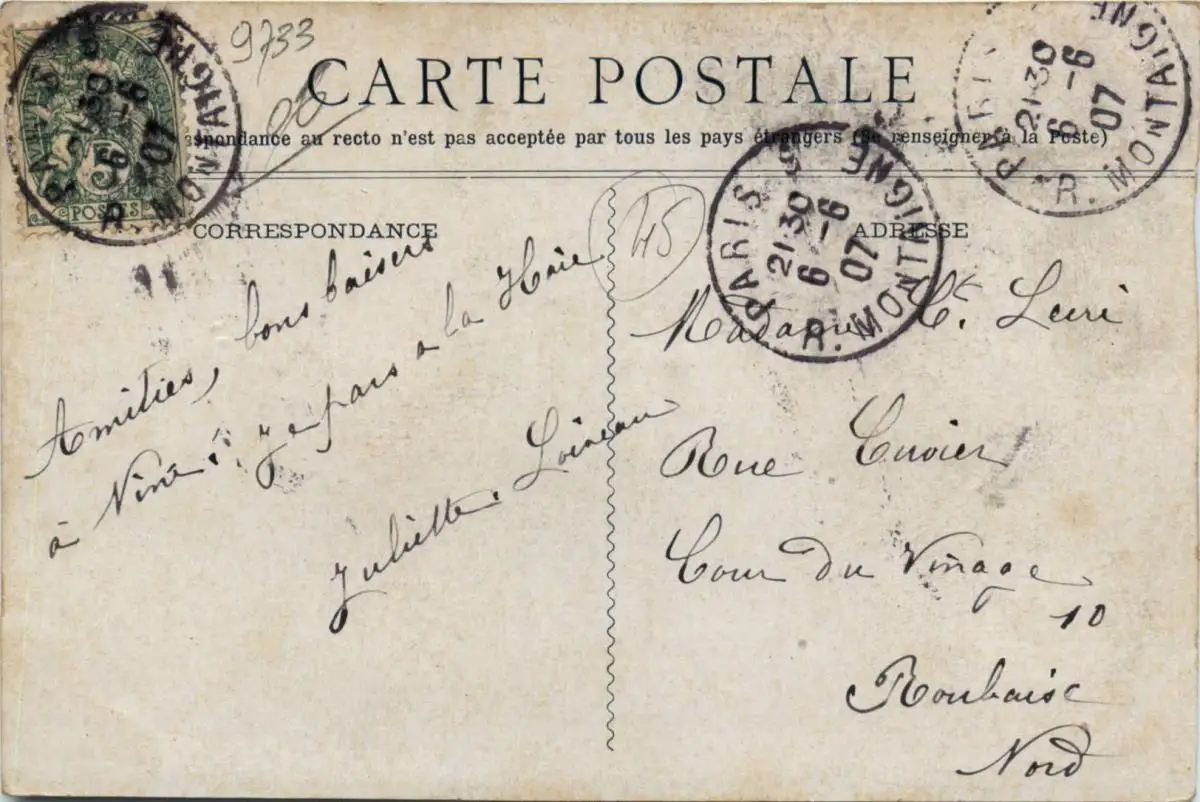 9733
CARTE POSTALE
spondance au recto n'est pas acceptée par tous les pays étrangers (Se renseigner à la Poste)
POSTES
5
R. MONTAIGNE
PARIS
21·30
6 - 6
07
R. MONTAIGNE
PARIS
21·30
6 - 6
07
R. MONTAIGNE
CORRESPONDANCE
45
ADRESSE
Amitiés, bons baisers
à Je pars a la Haie
Juliette
Madame
Rue Cuvier
Cour du Vinage
10
Roubaix
Nord